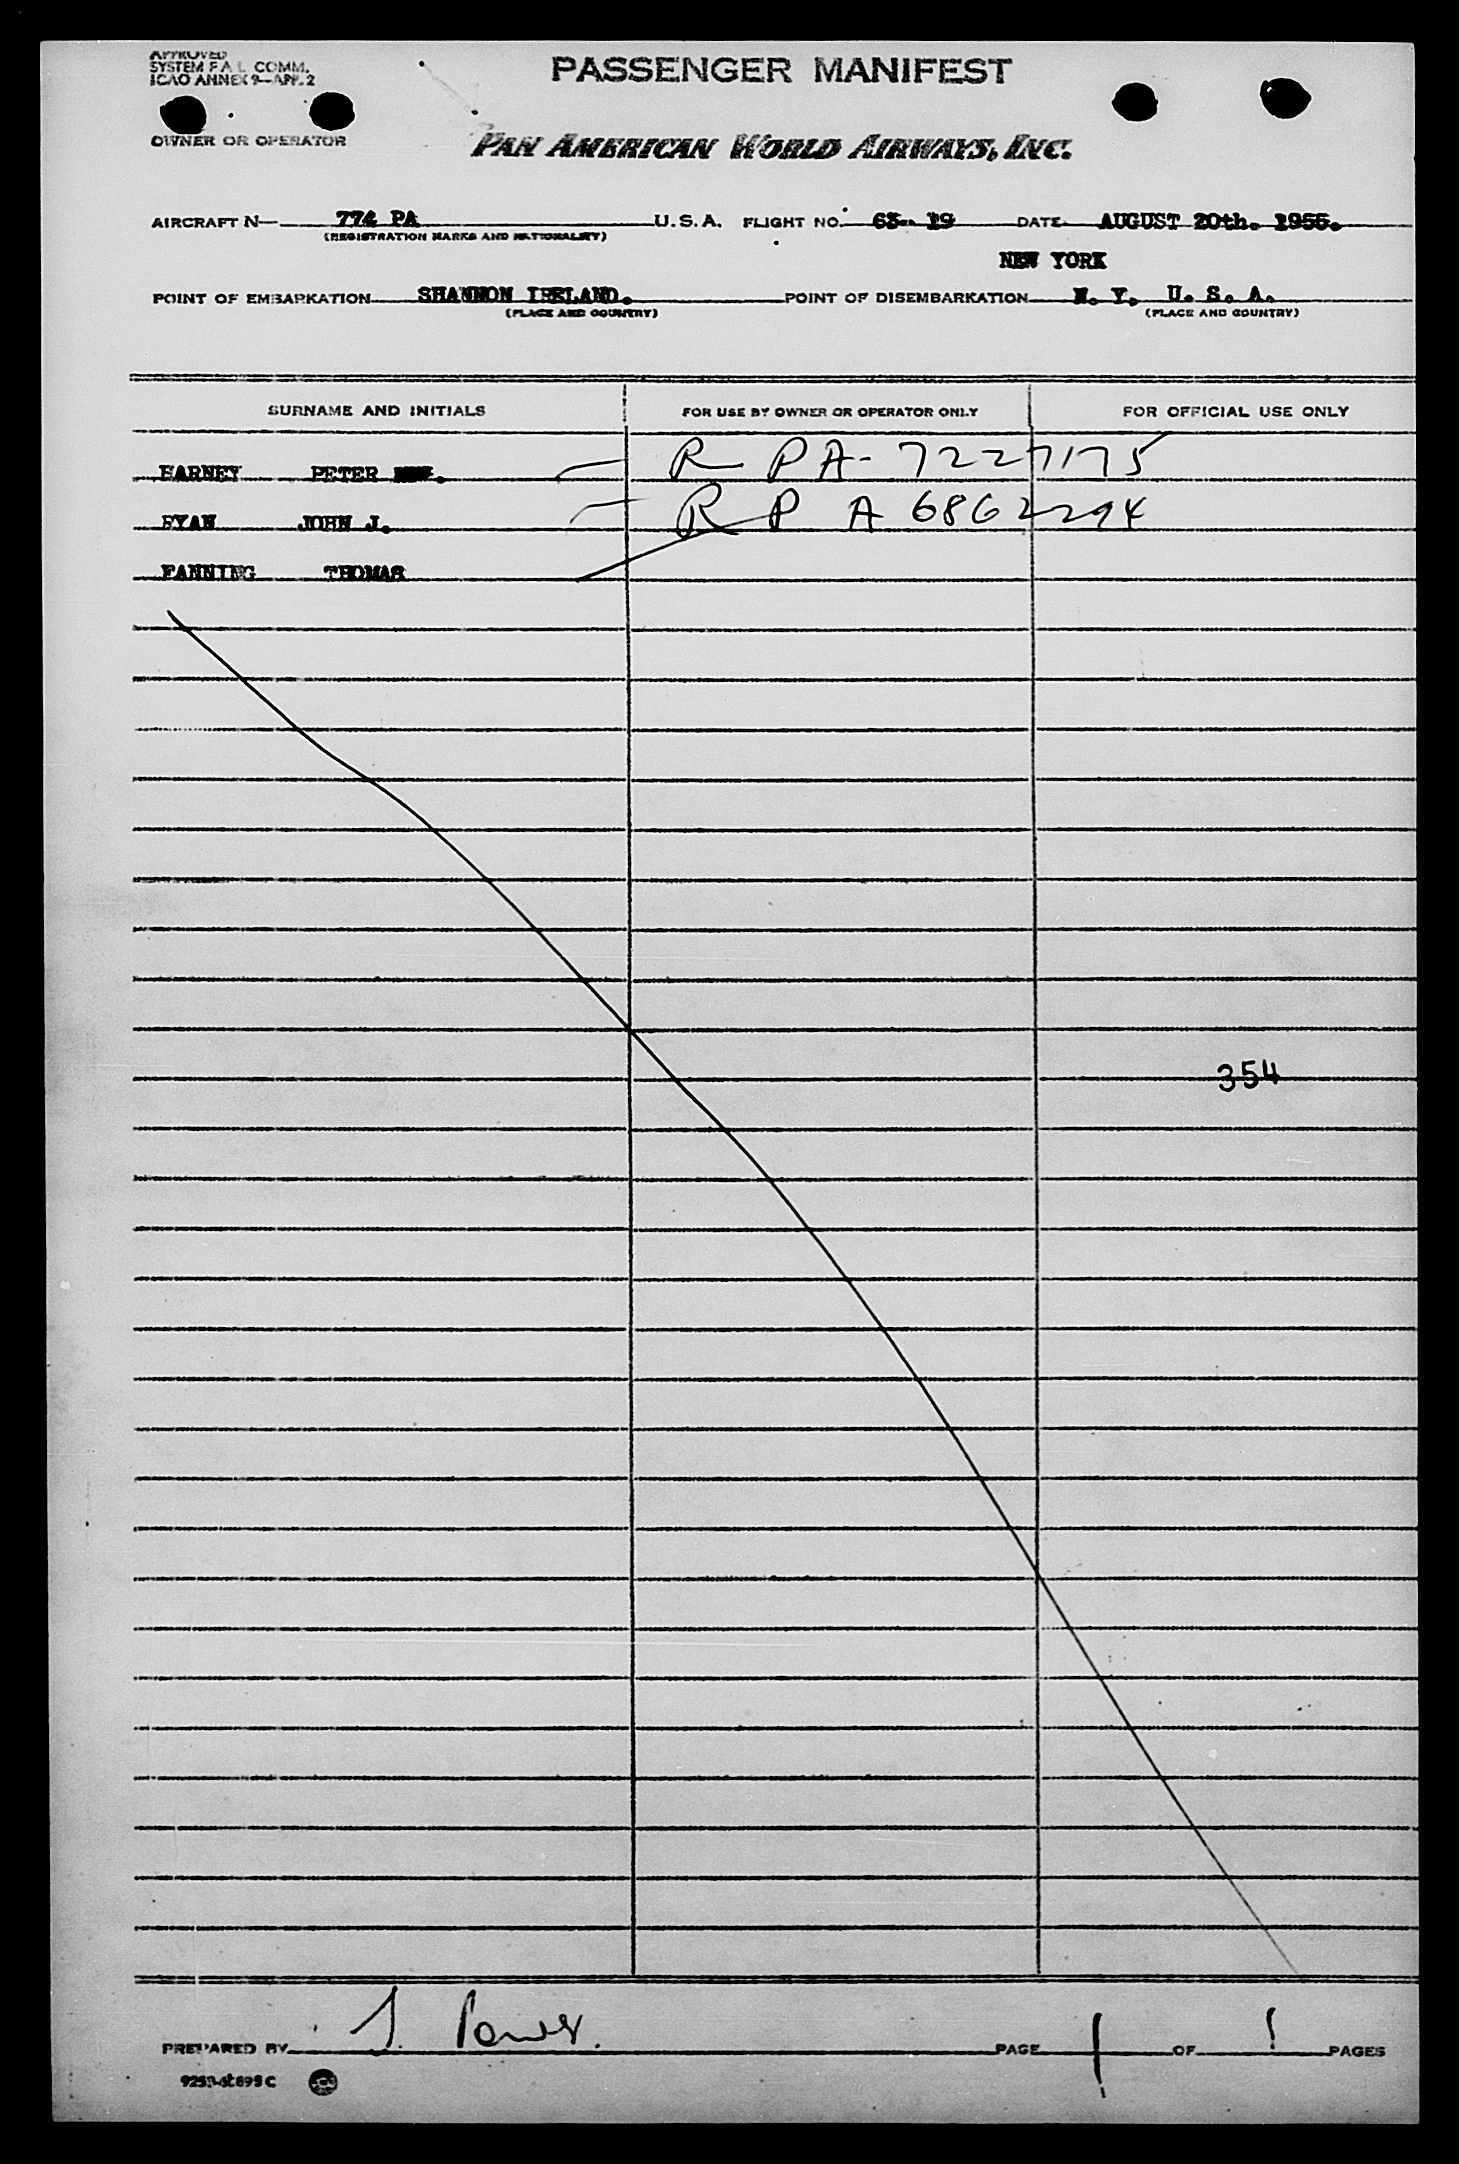 APPROVED
SYSTEM F A L COMM.
ICAO ANNEX 9—APP. 2
PASSENGER MANIFEST
OWNER OR OPERATOR
PAN AMERICAN WORLD AIRWAYS, INC.
AIRCRAFT N— 774 PA U.S.A. FLIGHT NO. 63- 19 DATE AUGUST 20th. 1955.
(REGISTRATION MARKS AND NATIONALITY)
NEW YORK
POINT OF EMBARKATION SHANNON IRELAND. POINT OF DISEMBARKATION N. Y. U. S. A.
(PLACE AND COUNTRY) (PLACE AND COUNTRY)
SURNAME AND INITIALS FOR USE BY OWNER OR OPERATOR ONLY FOR OFFICIAL USE ONLY
HARNEY PETER R PA- 7227175
RYAN JOHN J. R P A 6862294
FANNING THOMAS
354
PREPARED BY J. Power. PAGE 1 OF 1 PAGES